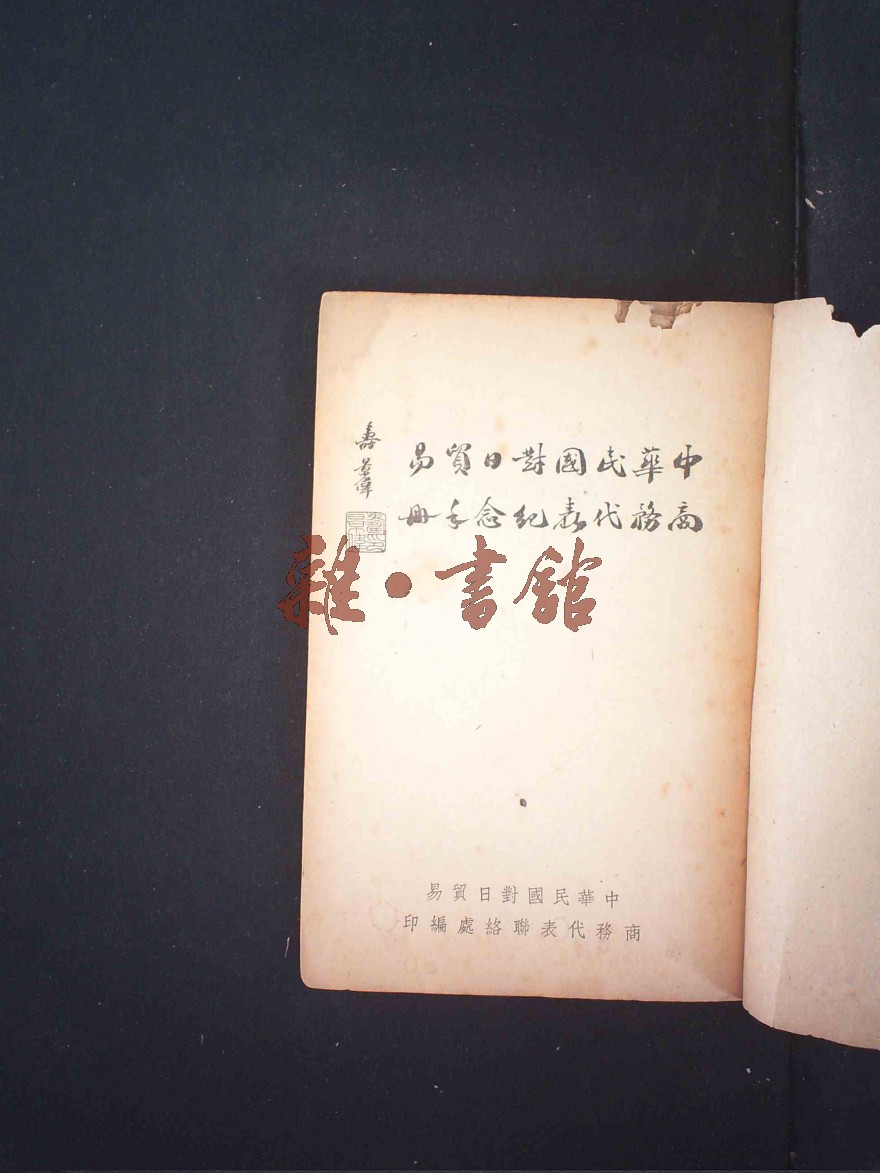 中華民國對日貿易
商務代表紀念手冊
壽景偉
雜·書館
中華民國對日貿易
商務代表聯絡處編印